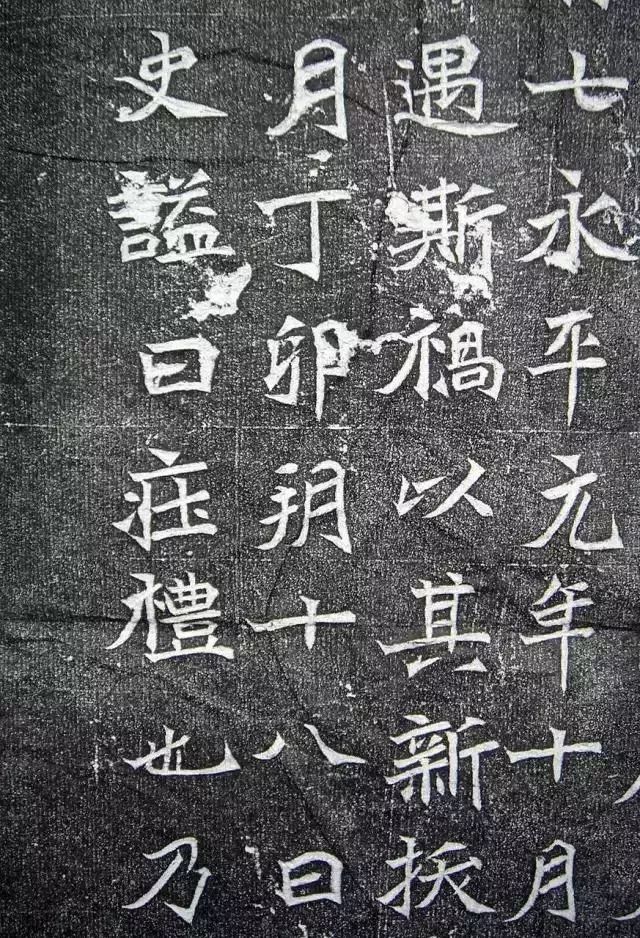 七永平元年十月
遇斯禍以其新拔
月丁卯朔十八日
史謚曰庄禮也乃